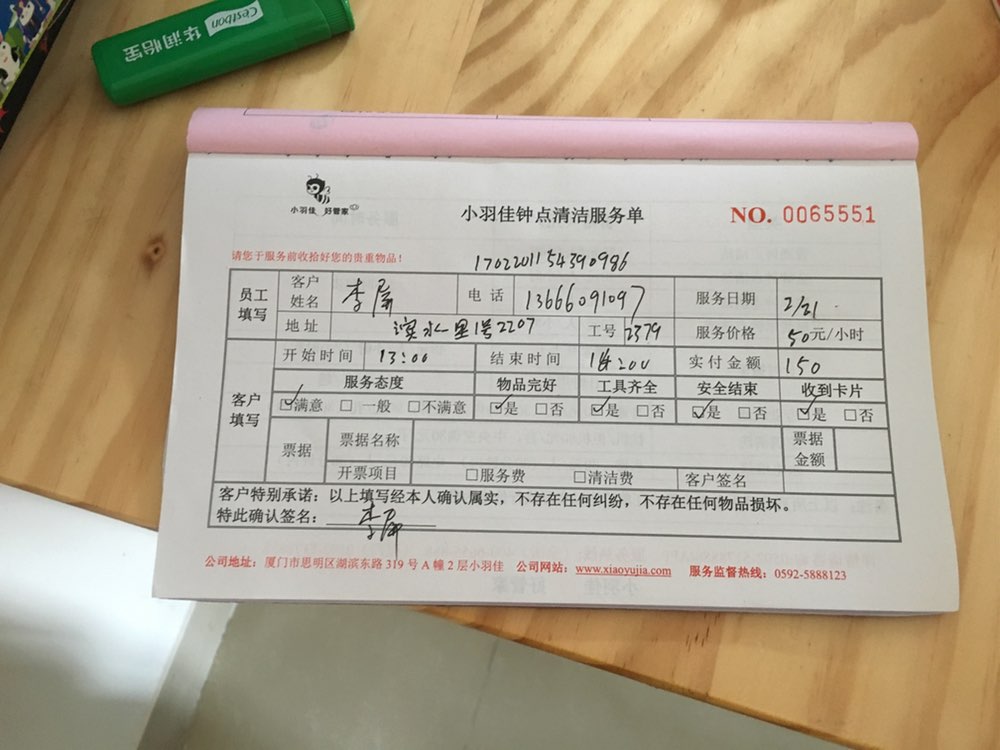 华润怡宝 Cestbon
小羽佳 好管家
小羽佳钟点清洁服务单
NO. 0065551
请您于服务前收拾好您的贵重物品！
1702201154390986
员工填写 客户姓名 李屏 电话 13666091097 服务日期 2/21
地址 滨水一里1号2207 工号 2379 服务价格 50元/小时
客户填写 开始时间 13:00 结束时间 实付金额 150
服务态度 物品完好 工具齐全 安全结束 收到卡片
☑满意 □一般 □不满意 ☑是 □否 ☑是 □否 ☑是 □否 ☑是 □否
票据 票据名称 票据金额
开票项目 □服务费 □清洁费 客户签名
客户特别承诺：以上填写经本人确认属实，不存在任何纠纷，不存在任何物品损坏。
特此确认签名：李屏
公司地址：厦门市思明区湖滨东路 319 号 A 幢 2 层小羽佳 公司网站：www.xiaoyujia.com 服务监督热线：0592-5888123